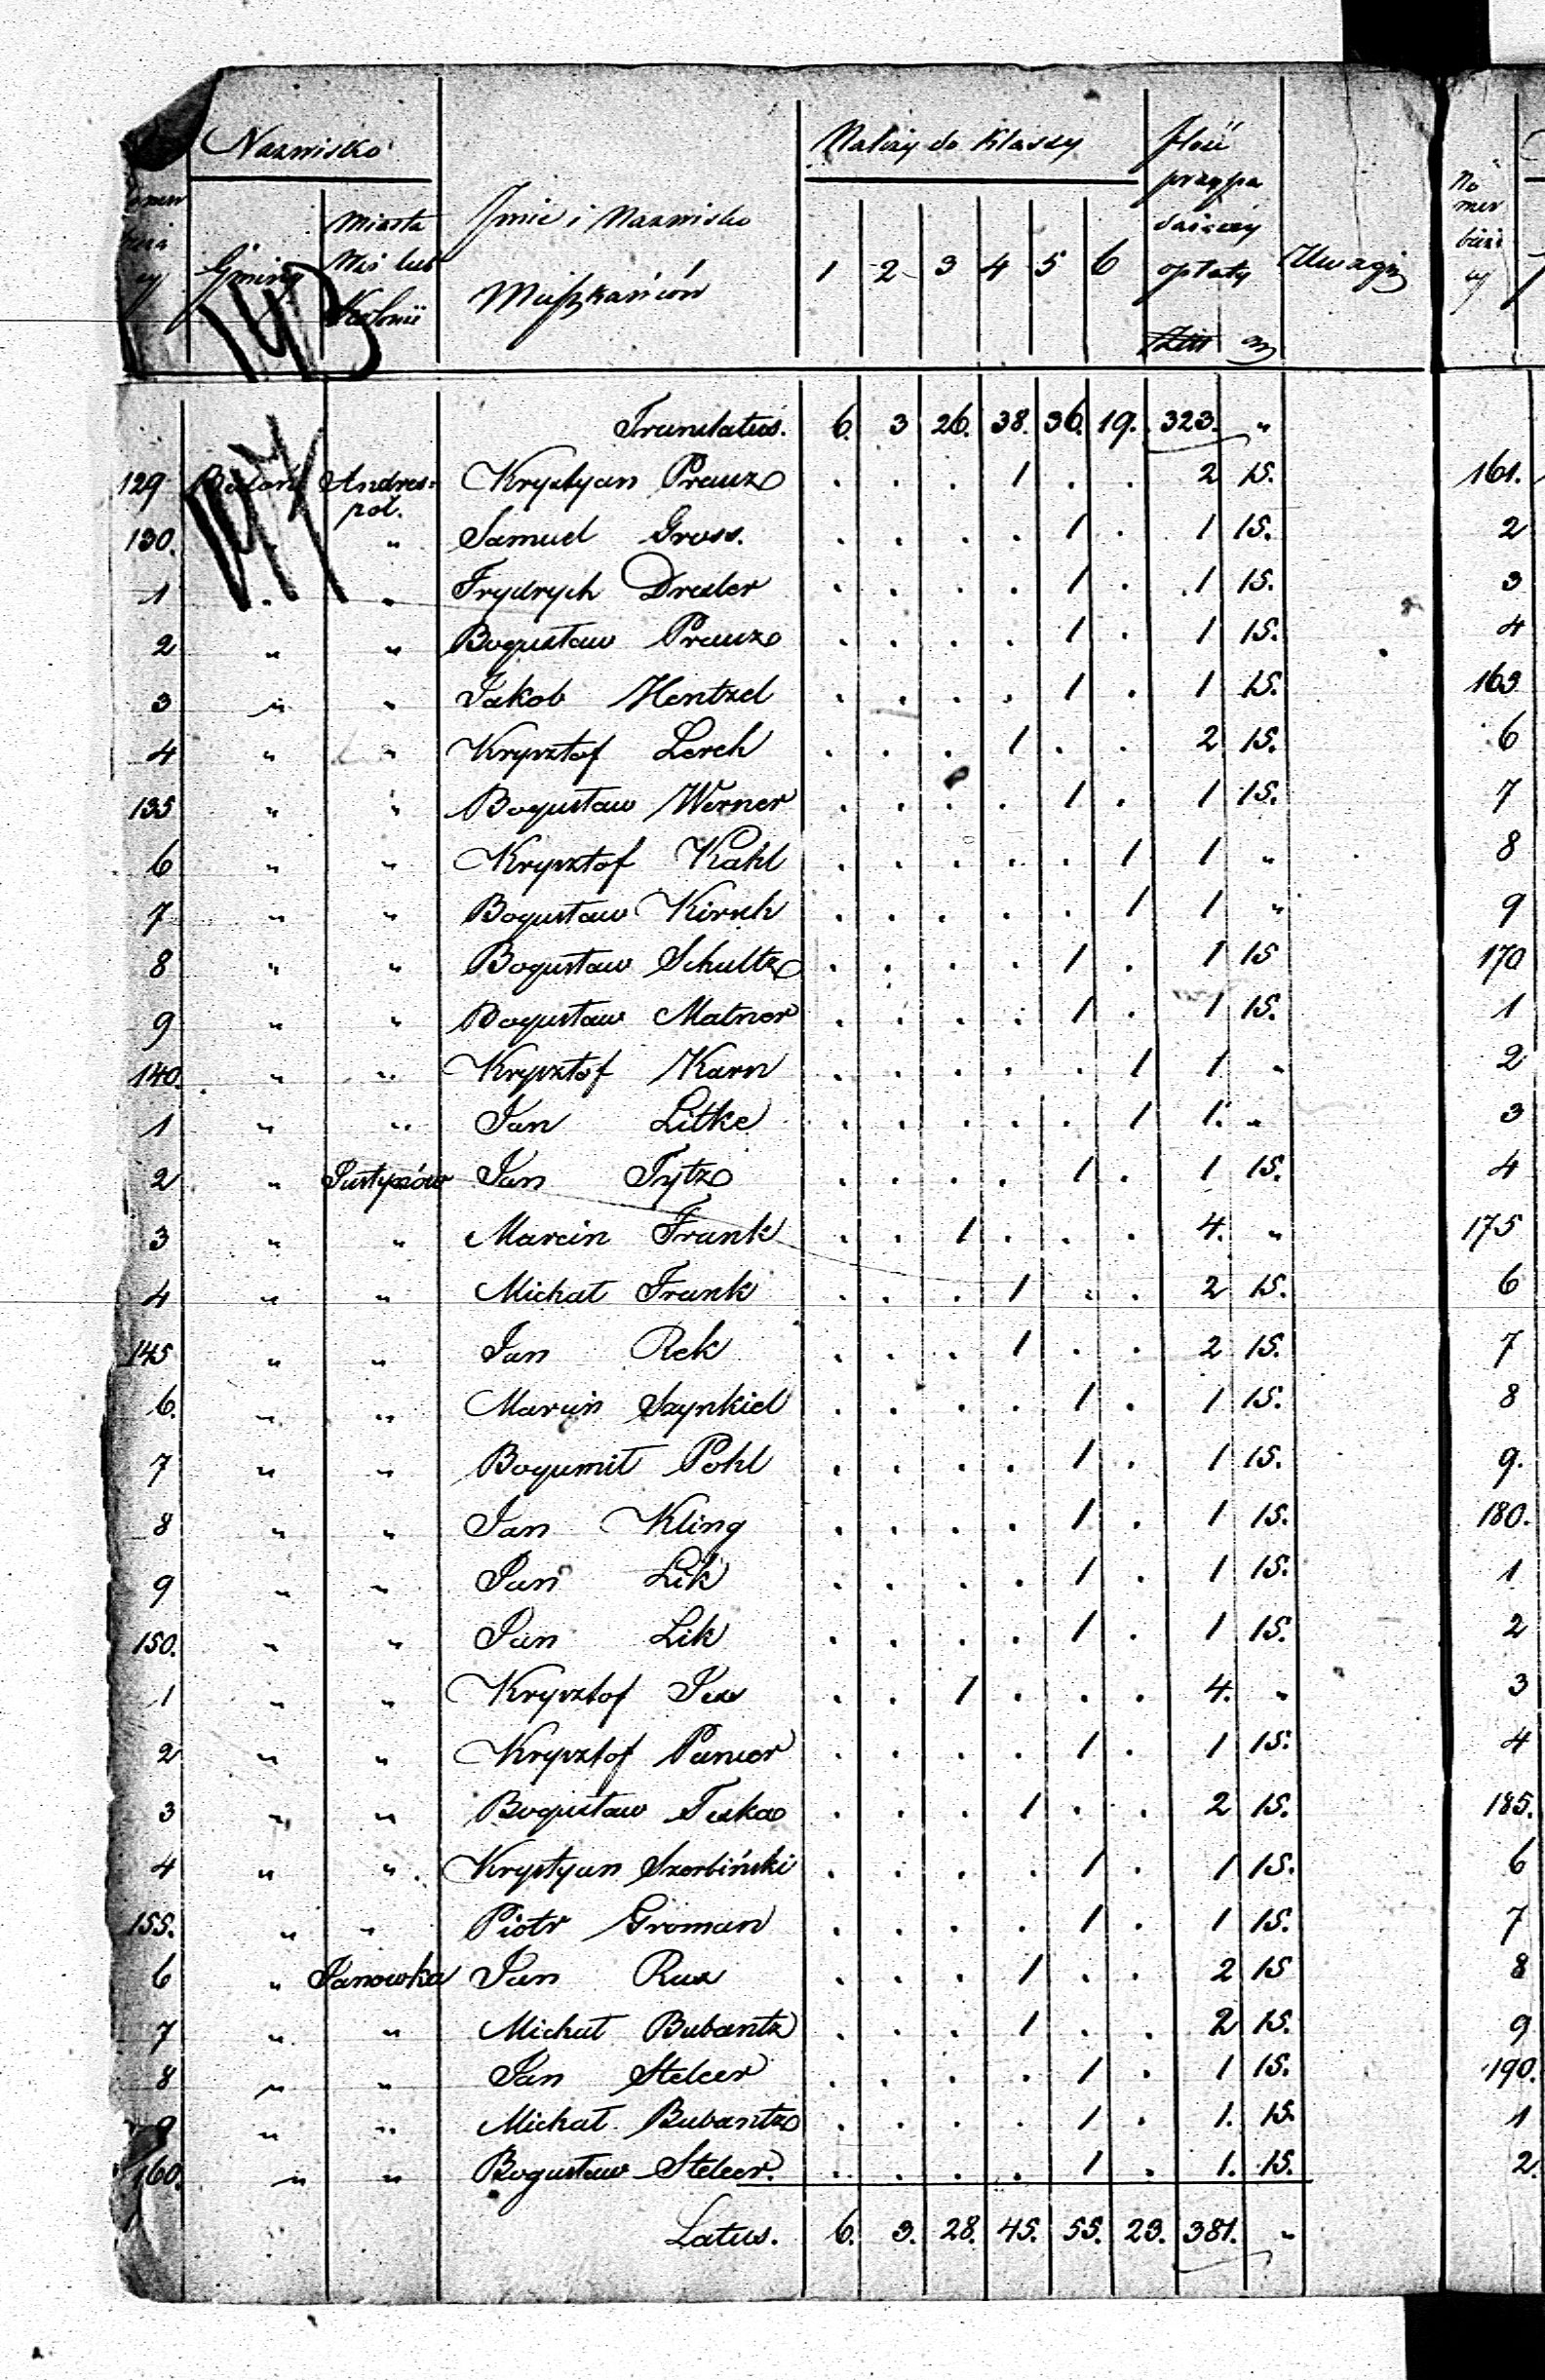 Nazwisko
Należy do Klassy
Ilość
przypa
dającéy
Imie i Nazwisko
Mieszkańców
Miasta
Wsi lub
Kolonii
Gminy
1 2 3 4 5 6
opłaty
Uwagi
Złtt gr
No
mer
bież
Translatus. 6. 3 26. 38. 36. 19. 323. "
129 Andres= Krystyan Prauze . . . 1 . . 2 15. 161.
pol.
130. " Samuel Gross. . . . . 1 . 1 15. 2
1 " " Frydrych Dresler . . . . 1 . 1 15. 3
2 " " Bogusław Prauze . . . . 1 . 1 15. 4
3 " " Jakob Hentzel . . . . 1 . 1 15. 165
4 " " Krysztof Lerch . . . 1 . . 2 15. 6
135 " " Bogusław Werner . . . . 1 . 1 15. 7
6 " " Krysztof Kahl . . . . . 1 1 " 8
7 " " Bogusław Kirsch . . . . . 1 1 " 9
8 " " Bogusław Schultze . . . . 1 . 1 15 170
9 " " Bogusław Matner . . . . 1 . 1 15. 1
140. " " Krysztof Karn . . . . . 1 1 " 2
1 " " Jan Litke . . . . . 1 1. " 3
2 " Justynów Jan Tytz . . . . 1 . 1 15. 4
3 " " Marcin Frank . . 1 . . . 4. " 175
4 " " Michał Frank . . . 1 . . 2 15. 6
145 " " Jan Rek . . . 1 . . 2 15. 7
6. " " Marcin Szynkiel . . . . 1 . 1 15. 8
7 " " Bogumił Pohl . . . . 1 . 1 15. 9.
8 " " Jan Kling . . . . 1 . 1 15. 180.
9 " " Jan Lik . . . . 1 . 1 15. 1
150. " " Jan Lik . . . . 1 . 1 15. 2
1 " " Krysztof . . 1 . . . 4. " 3
2 " " Krysztof Pancer . . . . 1 . 1 15. 4
3 " " Bogusław Teska . . . 1 . . 2 15. 185.
4 " " Krystyan Szorbiński . . . . 1 . 1 15. 6
155. " " Piotr Groman . . . . 1 . 1 15. 7
6 " Janowka Jan Rux . . . 1 . . 2 15 8
7 " " Michał Bubantz . . . 1 . . 2 15. 9
8 " " Jan Stelcer . . . . 1 . 1 15. 190.
9 " " Michał Bubantz . . . . 1 . 1. 15. 1
160. " " Bogusław Stelcer. . . . . 1 . 1. 15. 2.
Latus. 6. 3. 28. 45. 55. 23. 381. "